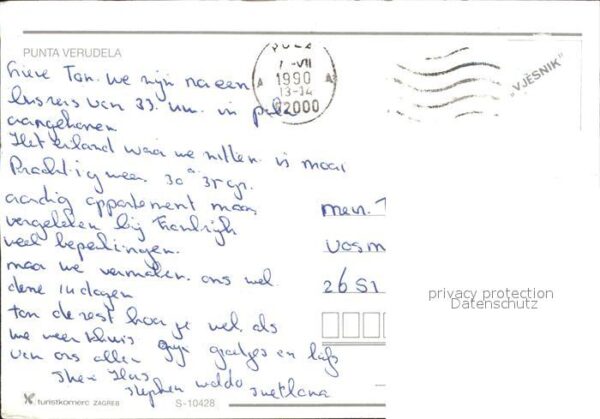 PUNTA VERUDELA
PULA
7 -VII
1990
13-14
52000
A A
"VJESNIK"
Lieve Ton. We zijn na een
busreis van 33. uur. in pula
aangekomen
Het eiland waar we zitten is mooi
Prachtig weer 30 a 35 gr.
aardig appartement maar
vergeleken bij Frankrijk
veel beperkingen.
maar we vermaken ons wel
deze dagen
Ton de rest hoor je wel als
we weer thuis zijn groetjes en liefs
van ons allen
stephen waldo svetlana
mevr. T
Vosm
2651
privacy protection
Datenschutz
turistkomerc ZAGREB
S-10428